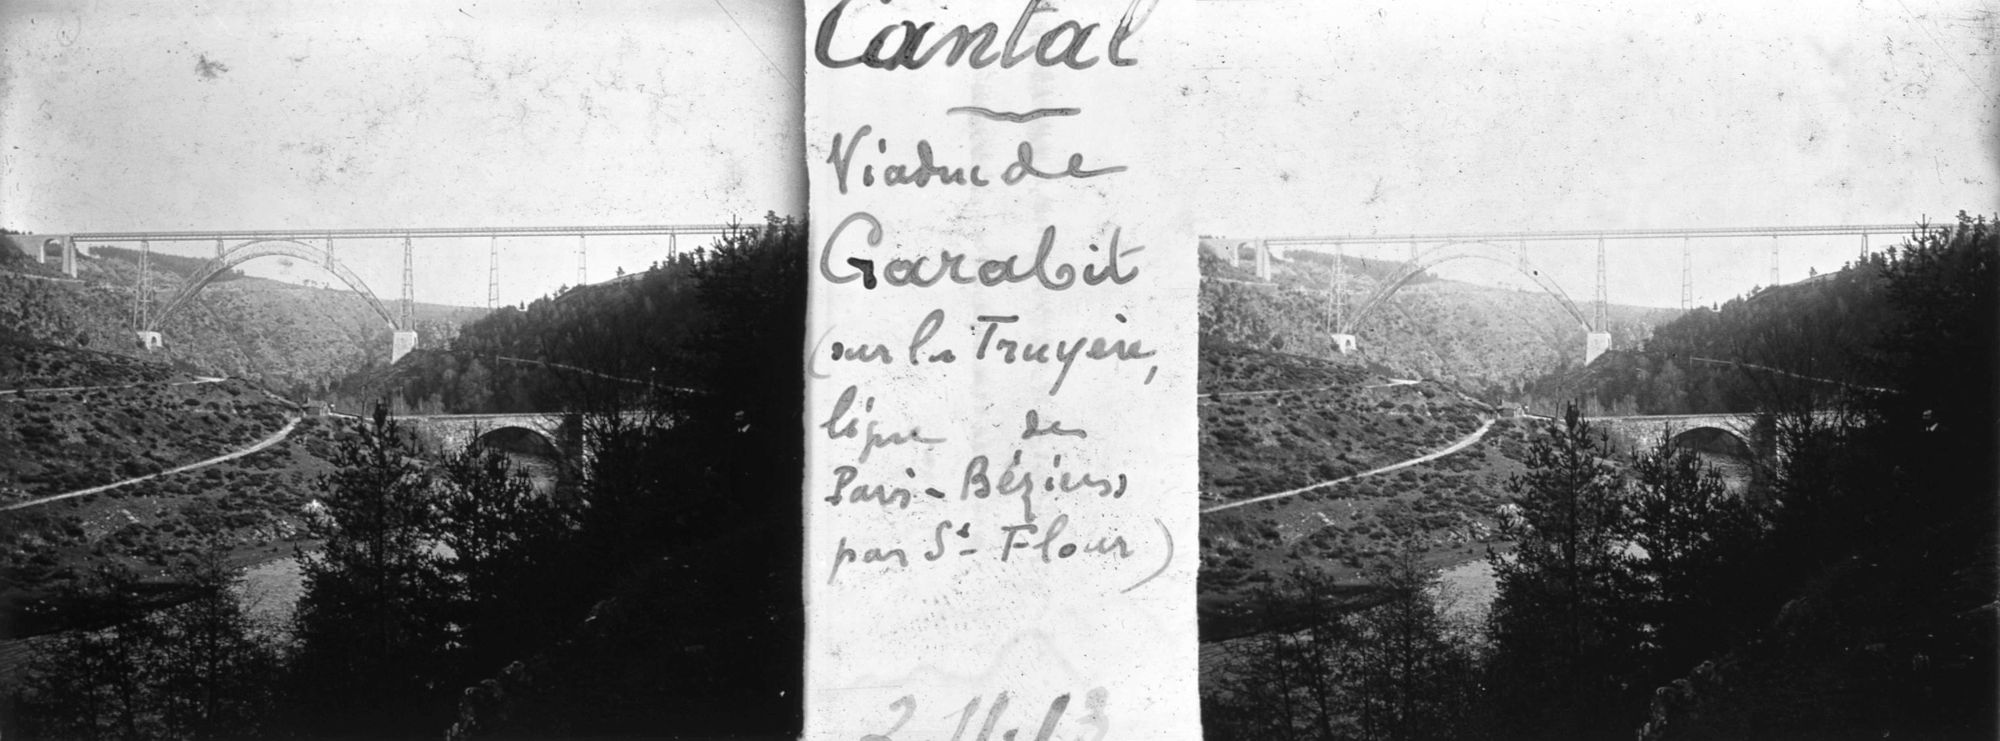 Cantal
Viaduc de
Garabit
(sur la Truyère,
ligne de
Paris-Béziers
par St-Flour)